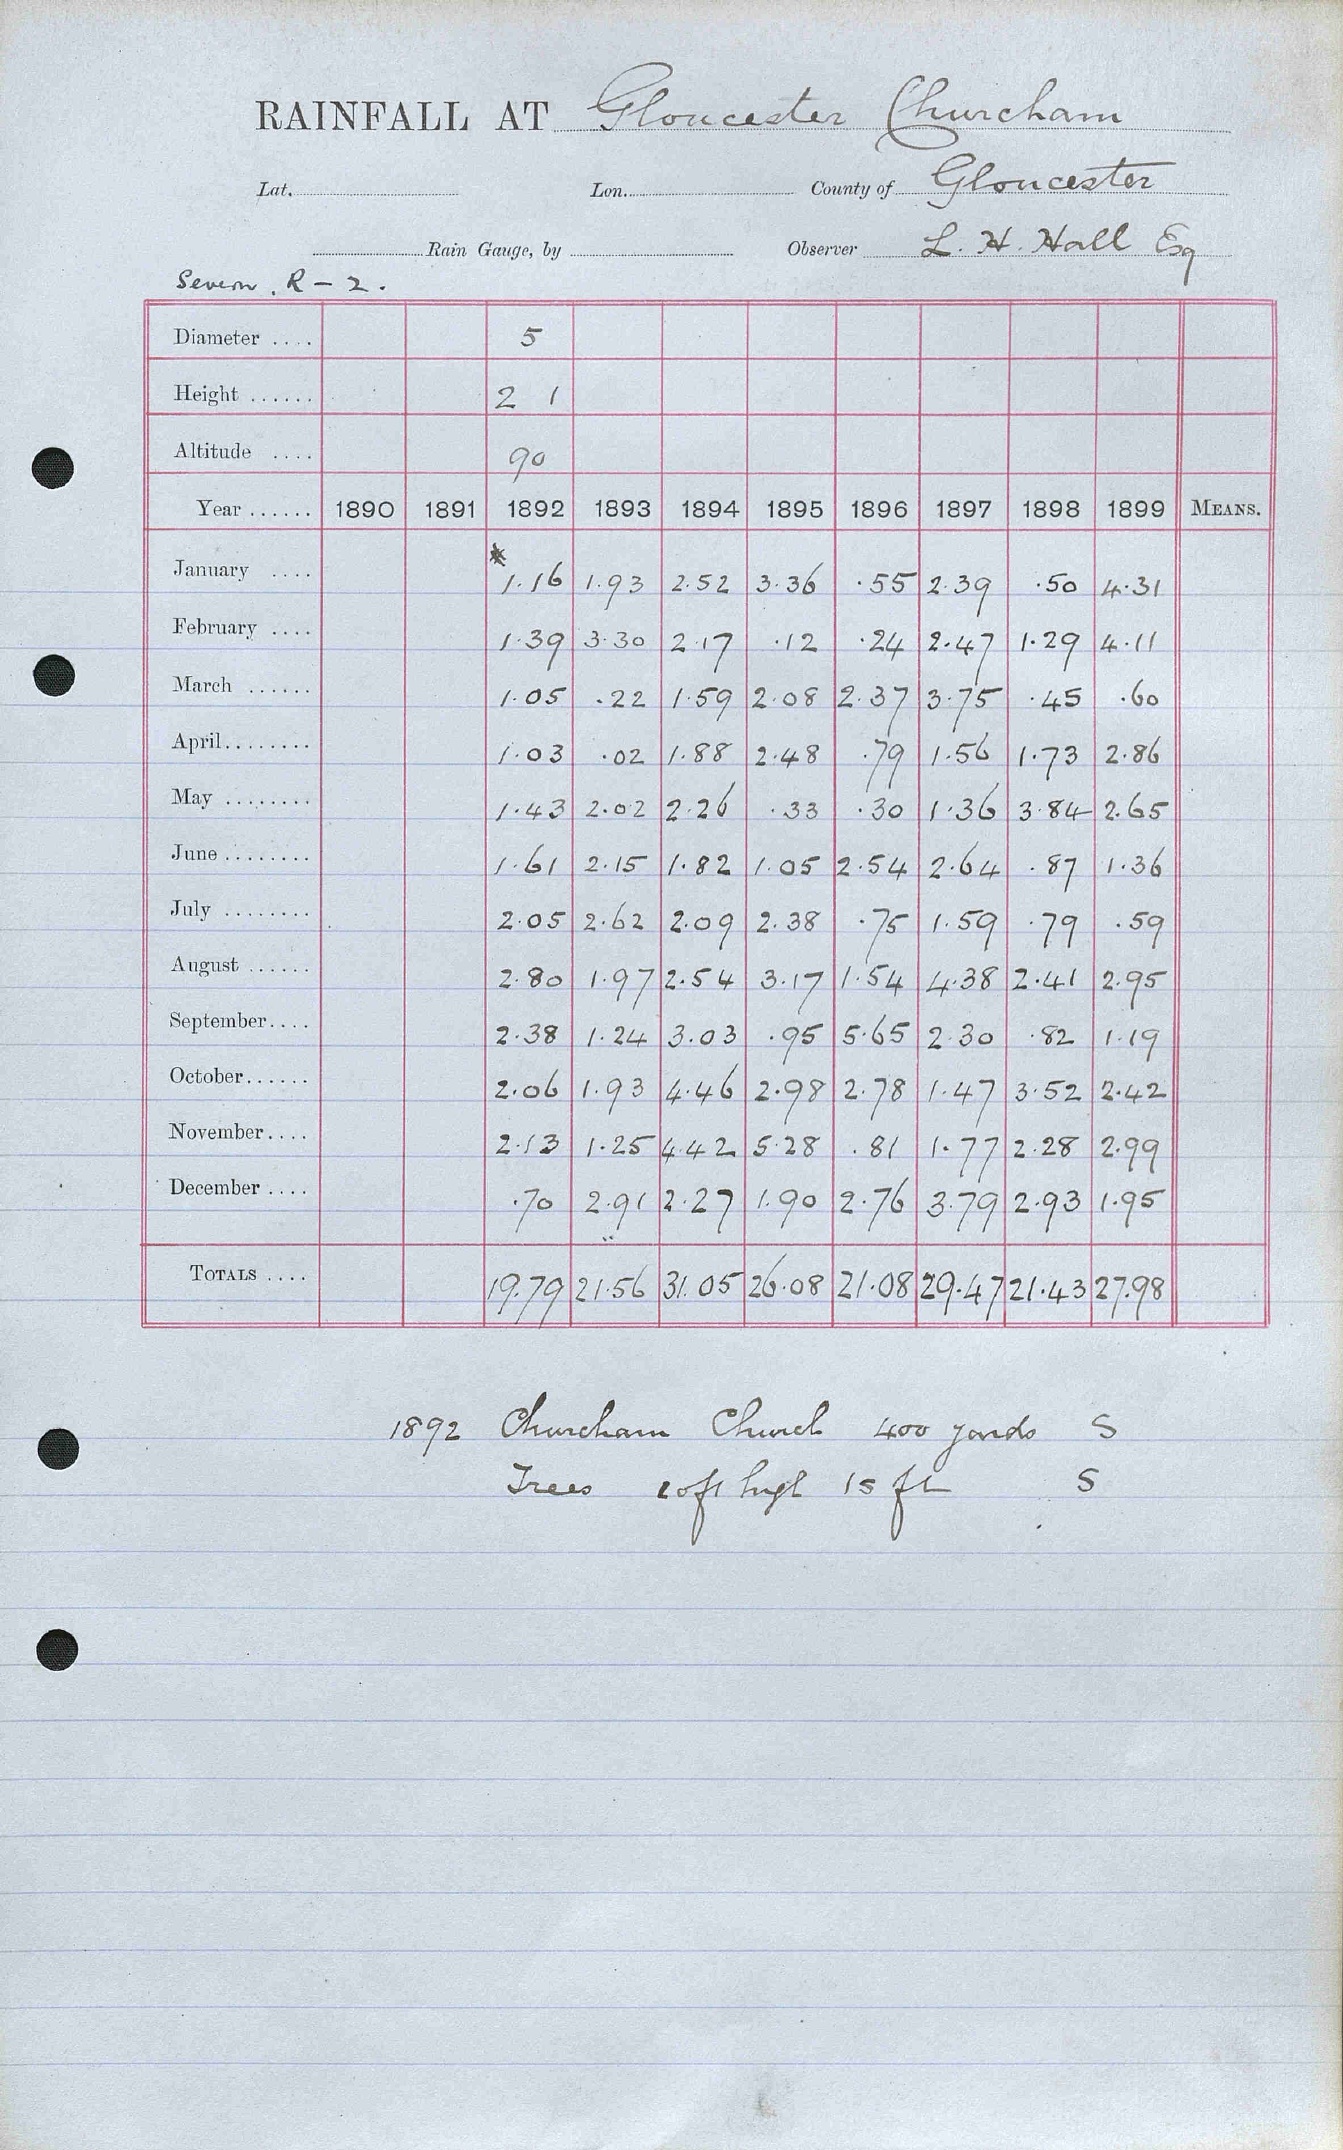 RAINFALL AT Gloucester Churcham
Lat. Lon. County of Gloucester
Rain Gauge, by Observer L. H. Hall Esq
Severn. R - 2.
Diameter .... 5
Height ...... 2 1
Altitude .... 90
Year ...... 1890 1891 1892 1893 1894 1895 1896 1897 1898 1899 MEANS.
January .... * 1.16 1.93 2.52 3.36 .55 2.39 .50 4.31
February .... 1.39 3.30 2.17 .12 .24 2.47 1.29 4.11
March ...... 1.05 .22 1.59 2.08 2.37 3.75 .45 .60
April........ 1.03 .02 1.88 2.48 .79 1.56 1.73 2.86
May ........ 1.43 2.02 2.26 .33 .30 1.36 3.84 2.65
June ........ 1.61 2.15 1.82 1.05 2.54 2.64 .87 1.36
July ........ 2.05 2.62 2.09 2.38 .75 1.59 .79 .59
August ...... 2.80 1.97 2.54 3.17 1.54 4.38 2.41 2.95
September.... 2.38 1.24 3.03 .95 5.65 2.30 .82 1.19
October...... 2.06 1.93 4.46 2.98 2.78 1.47 3.52 2.42
November.... 2.13 1.25 4.42 5.28 .81 1.77 2.28 2.99
December .... .70 2.91 2.27 1.90 2.76 3.79 2.93 1.95
TOTALS .... 19.79 21.56 31.05 26.08 21.08 29.47 21.43 27.98
1892 Churcham Church 400 yards S
Trees high 15 ft S